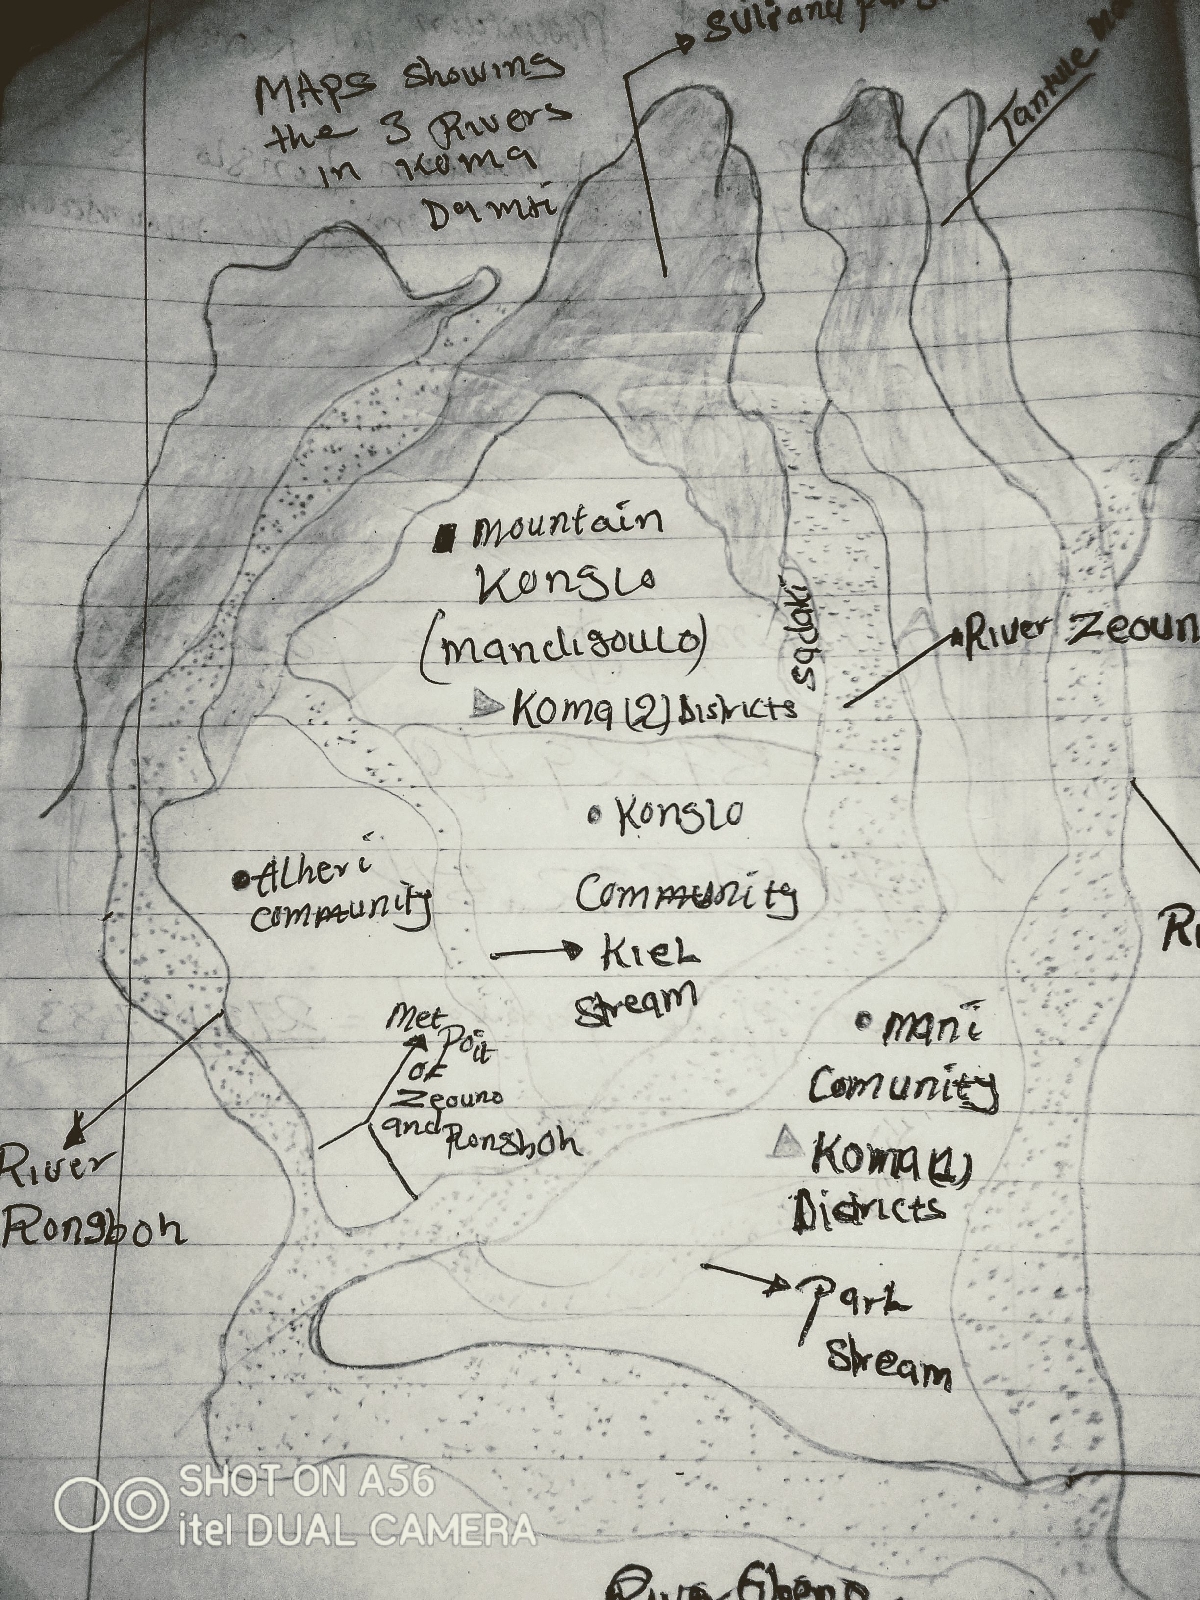 MAPS showing
the 3 Rivers
in Koma
Damti
Mountain
Konglo
(mandigoulo)
Koma (2) Districts
sadaki
River Zeoun
Konglo
Community
Alheri
community
Kiek
Stream
Met
Poit
of
Zeouno
and Rongboh
mani
Comunity
Koma (1)
Districts
River
Rongboh
Park
Stream
SHOT ON A56
itel DUAL CAMERA